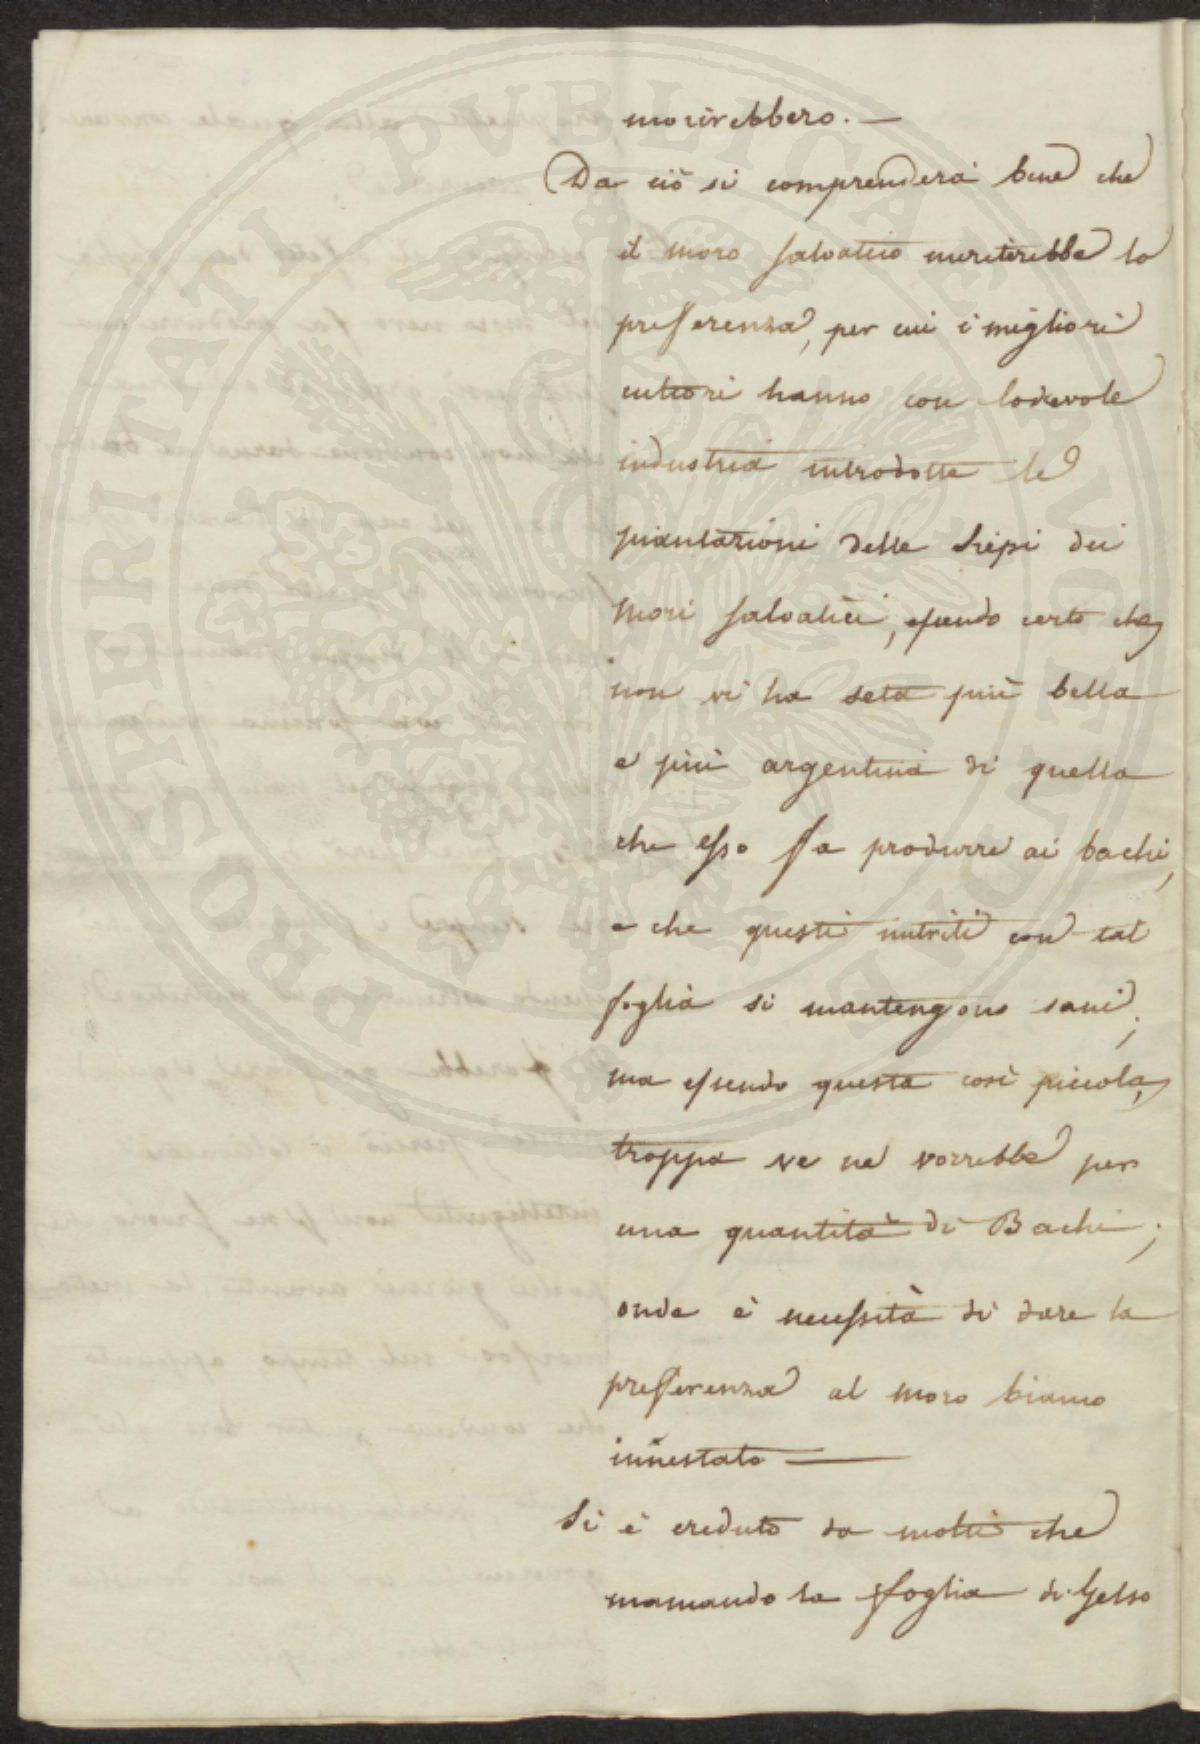 morirebbero. —
Da ciò si comprenderà bene che
il moro salvatico meriterebbe la
prefferenza, per cui i migliori
cultori hanno con lodevole
industria introdotte le
piantazioni delle siepi dei
Mori salvatici, essendo certo che
non vi ha seta più bella
e più argentina di quella
che esso fa produrre ai bachi,
e che questi nutriti con tal
foglia si mantengono sani;
ma essendo questa così piccola,
troppa ve ne vorrebbe per
una quantità di Bachi;
onde è necessità di dare la
prefferenza al moro bianco
innestato —
Si è creduto da molti che
mancando la foglia di Gelso
PROSPERITATI PVBLICAE AVGENDAE